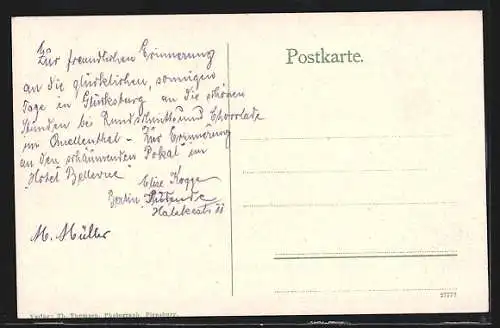 Zur freundlichen Erinnerung
an die glücklichen, sonnigen
Tage in Glücksburg an die schönen
Stunden bei Rundschnitt und Chocolade
im Quellenthal - Zur Erinnerung
an den schäumenden "Pokal" im
"Hotel Bellevue"
Elise Kogge
Berlin
M. Müller
Postkarte.
27777
Verlag: Th. Thomsen, Photograph, Flensburg.